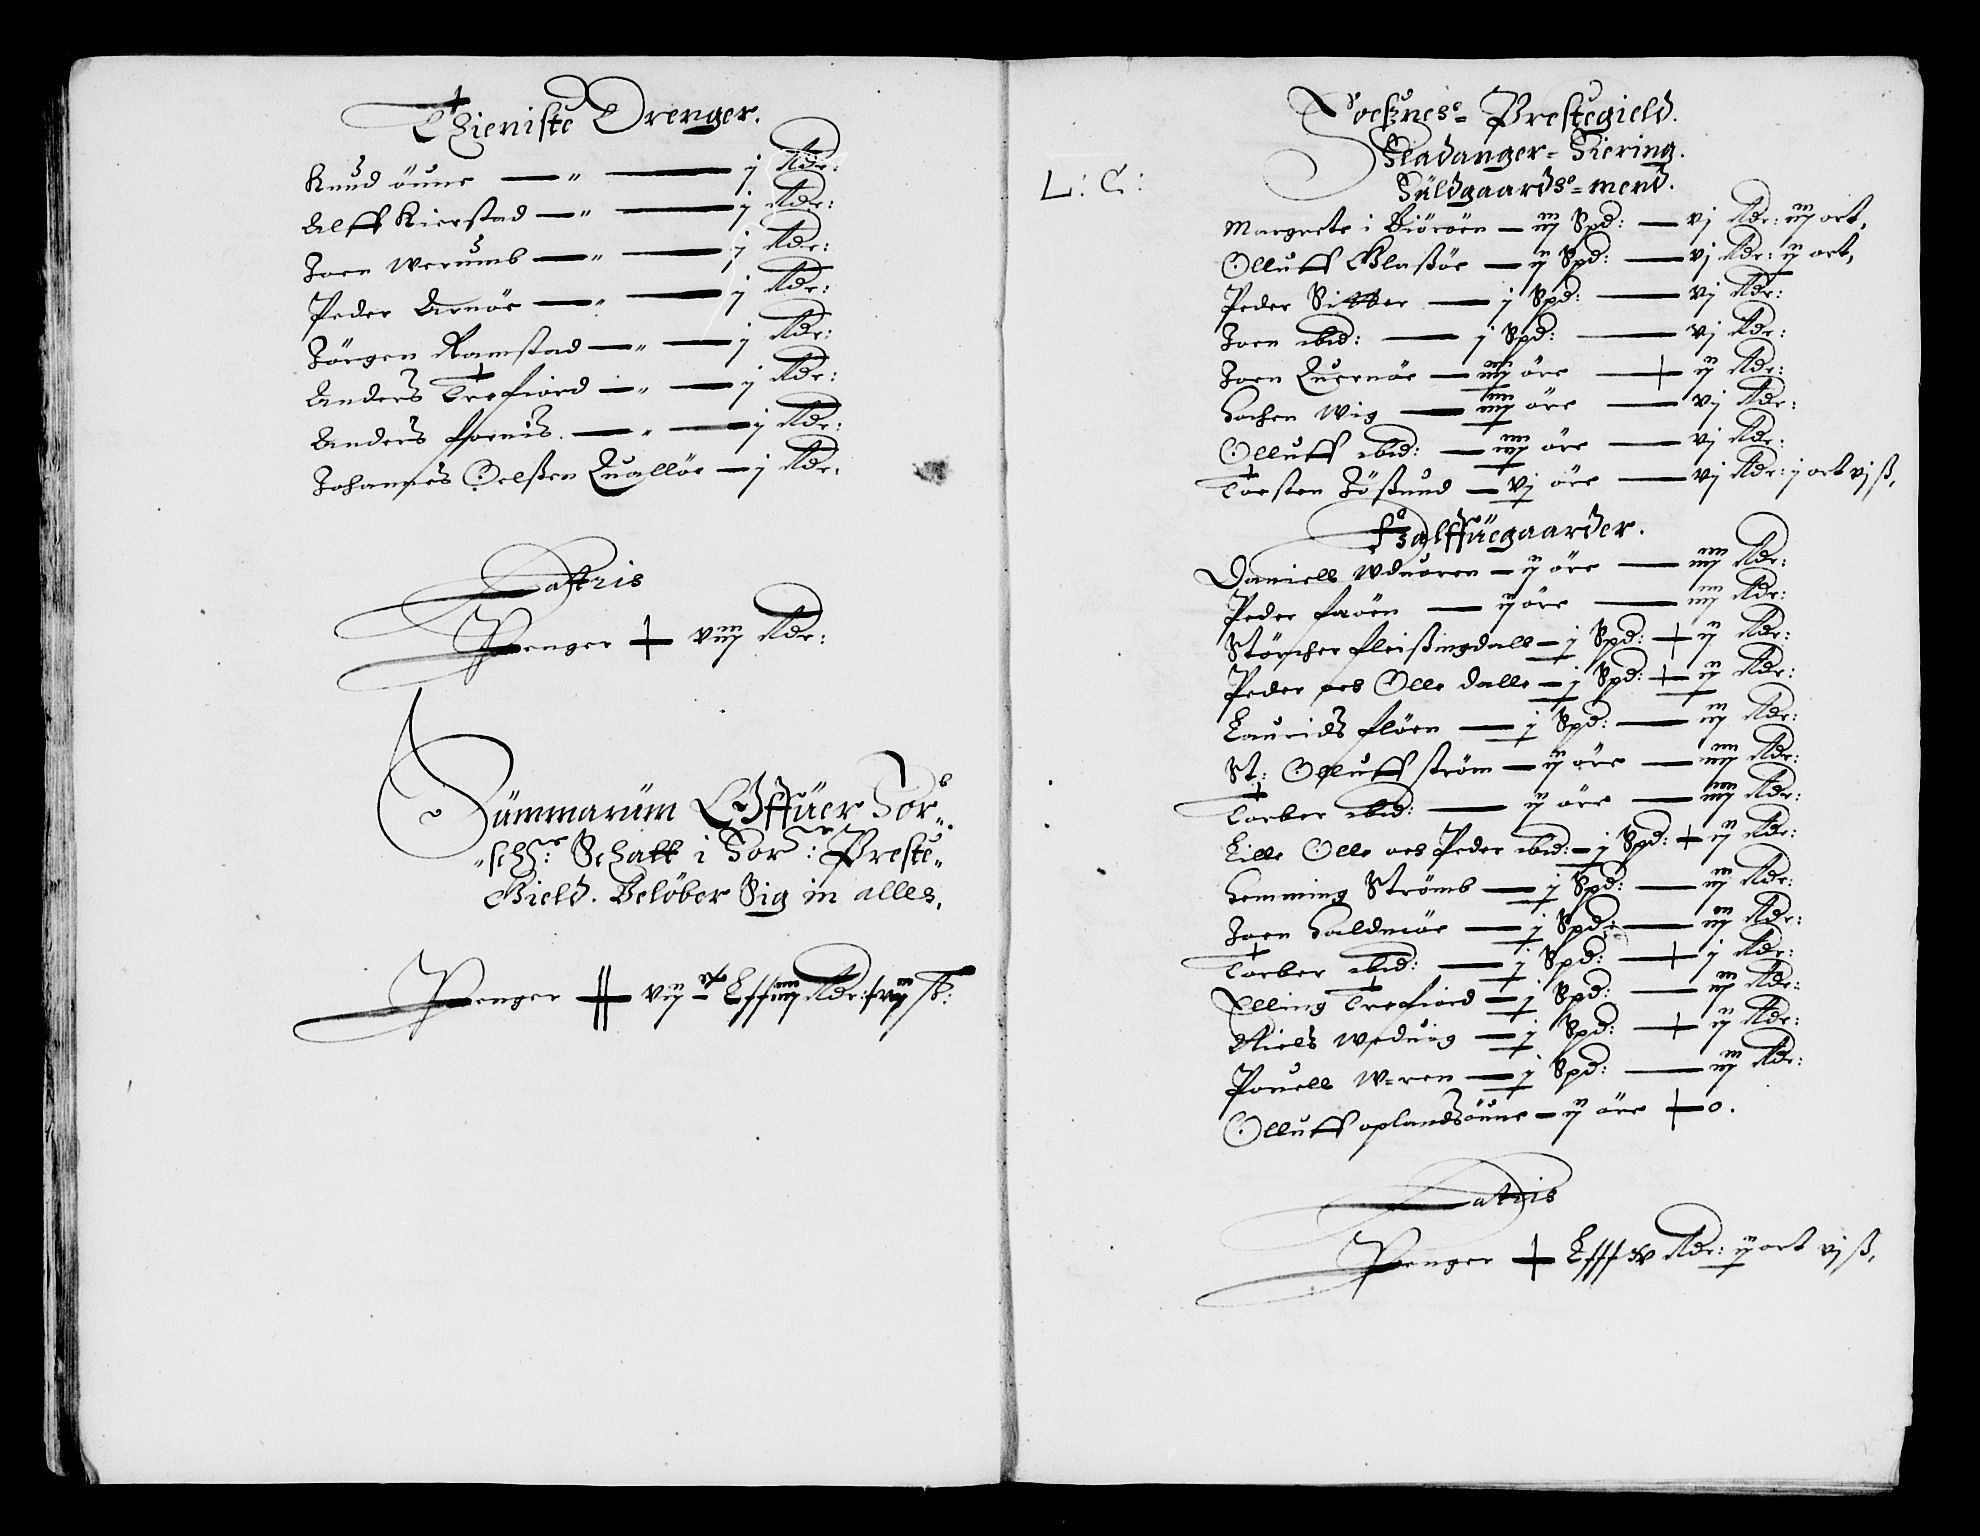 Thieniste Drenger.
Knud öune — „ — j Rdr:
Alff Kierstad — „ — j Rdr:
Joen Werumb — „ — j Rdr:
Peder Arnöe — „ — j Rdr:
Jörgen Ramstad — „ — j Rdr:
Anders Trefiord — „ — j Rdr:
Anders foenis. — „ — j Rdr:
Johannes Oelßen Quallöe — j Rdr:
Lateris
Penger + viij Rdr:
Summarum Offuer Tor„
„sch: Schatt i Tor: Preste„
Gield. Belöber Sig in alles.
Penger Rdr: ß:
L: C:
Soeßnes= Prestegield.
Stadanger= Kiering.
Fuldgaards= mend.
Margrete i Biöröen — iij Spd: — vj Rdr: iij ort,
Olluff Glaßöe — ij Spd: — vj Rdr: ij ort,
Peder Sitter — j Spd: — vj Rdr:
Joen ibid: — j Spd: — vj Rdr:
Joen Quernöe — iiij öre — ij Rdr:
Hachen Wig — iiij öre — vj Rdr:
Olluff ibid: — iiij öre — vj Rdr:
Torsten Jößund — vj öre — vj Rdr: j ort vj ß,
Halffuegaarder.
Daniell Wduoren — ij öre — iiij Rdr:
Peder faöen — ij öre — iiij Rdr:
Störcher fleißingdall — j Spd: + ij Rdr:
Peder oes Olle dalle — j Spd: + ij Rdr:
Laurids flöen — j Spd: — iij Rdr:
St: Olluff ström — ij öre — iiij Rdr:
Torber ibid: — ij öre — iiij Rdr:
Lille Olle oes Peder ibid: — j Spd: + ij Rdr:
Hemming Strömb — j Spd: — iij Rdr:
Joen Haldmöe — j Spd: — iij Rdr:
Torber ibid: — j Spd: + j Rdr:
Elling Trefiord — j Spd: — iij Rdr:
Niels Weduig — j Spd: + ij Rdr:
Pouell W=ren — j Spd: — iij Rdr:
Olluff oplandsöune — ij öre + 0.
Lateris
Penger + Rdr: ij ort vj ß,